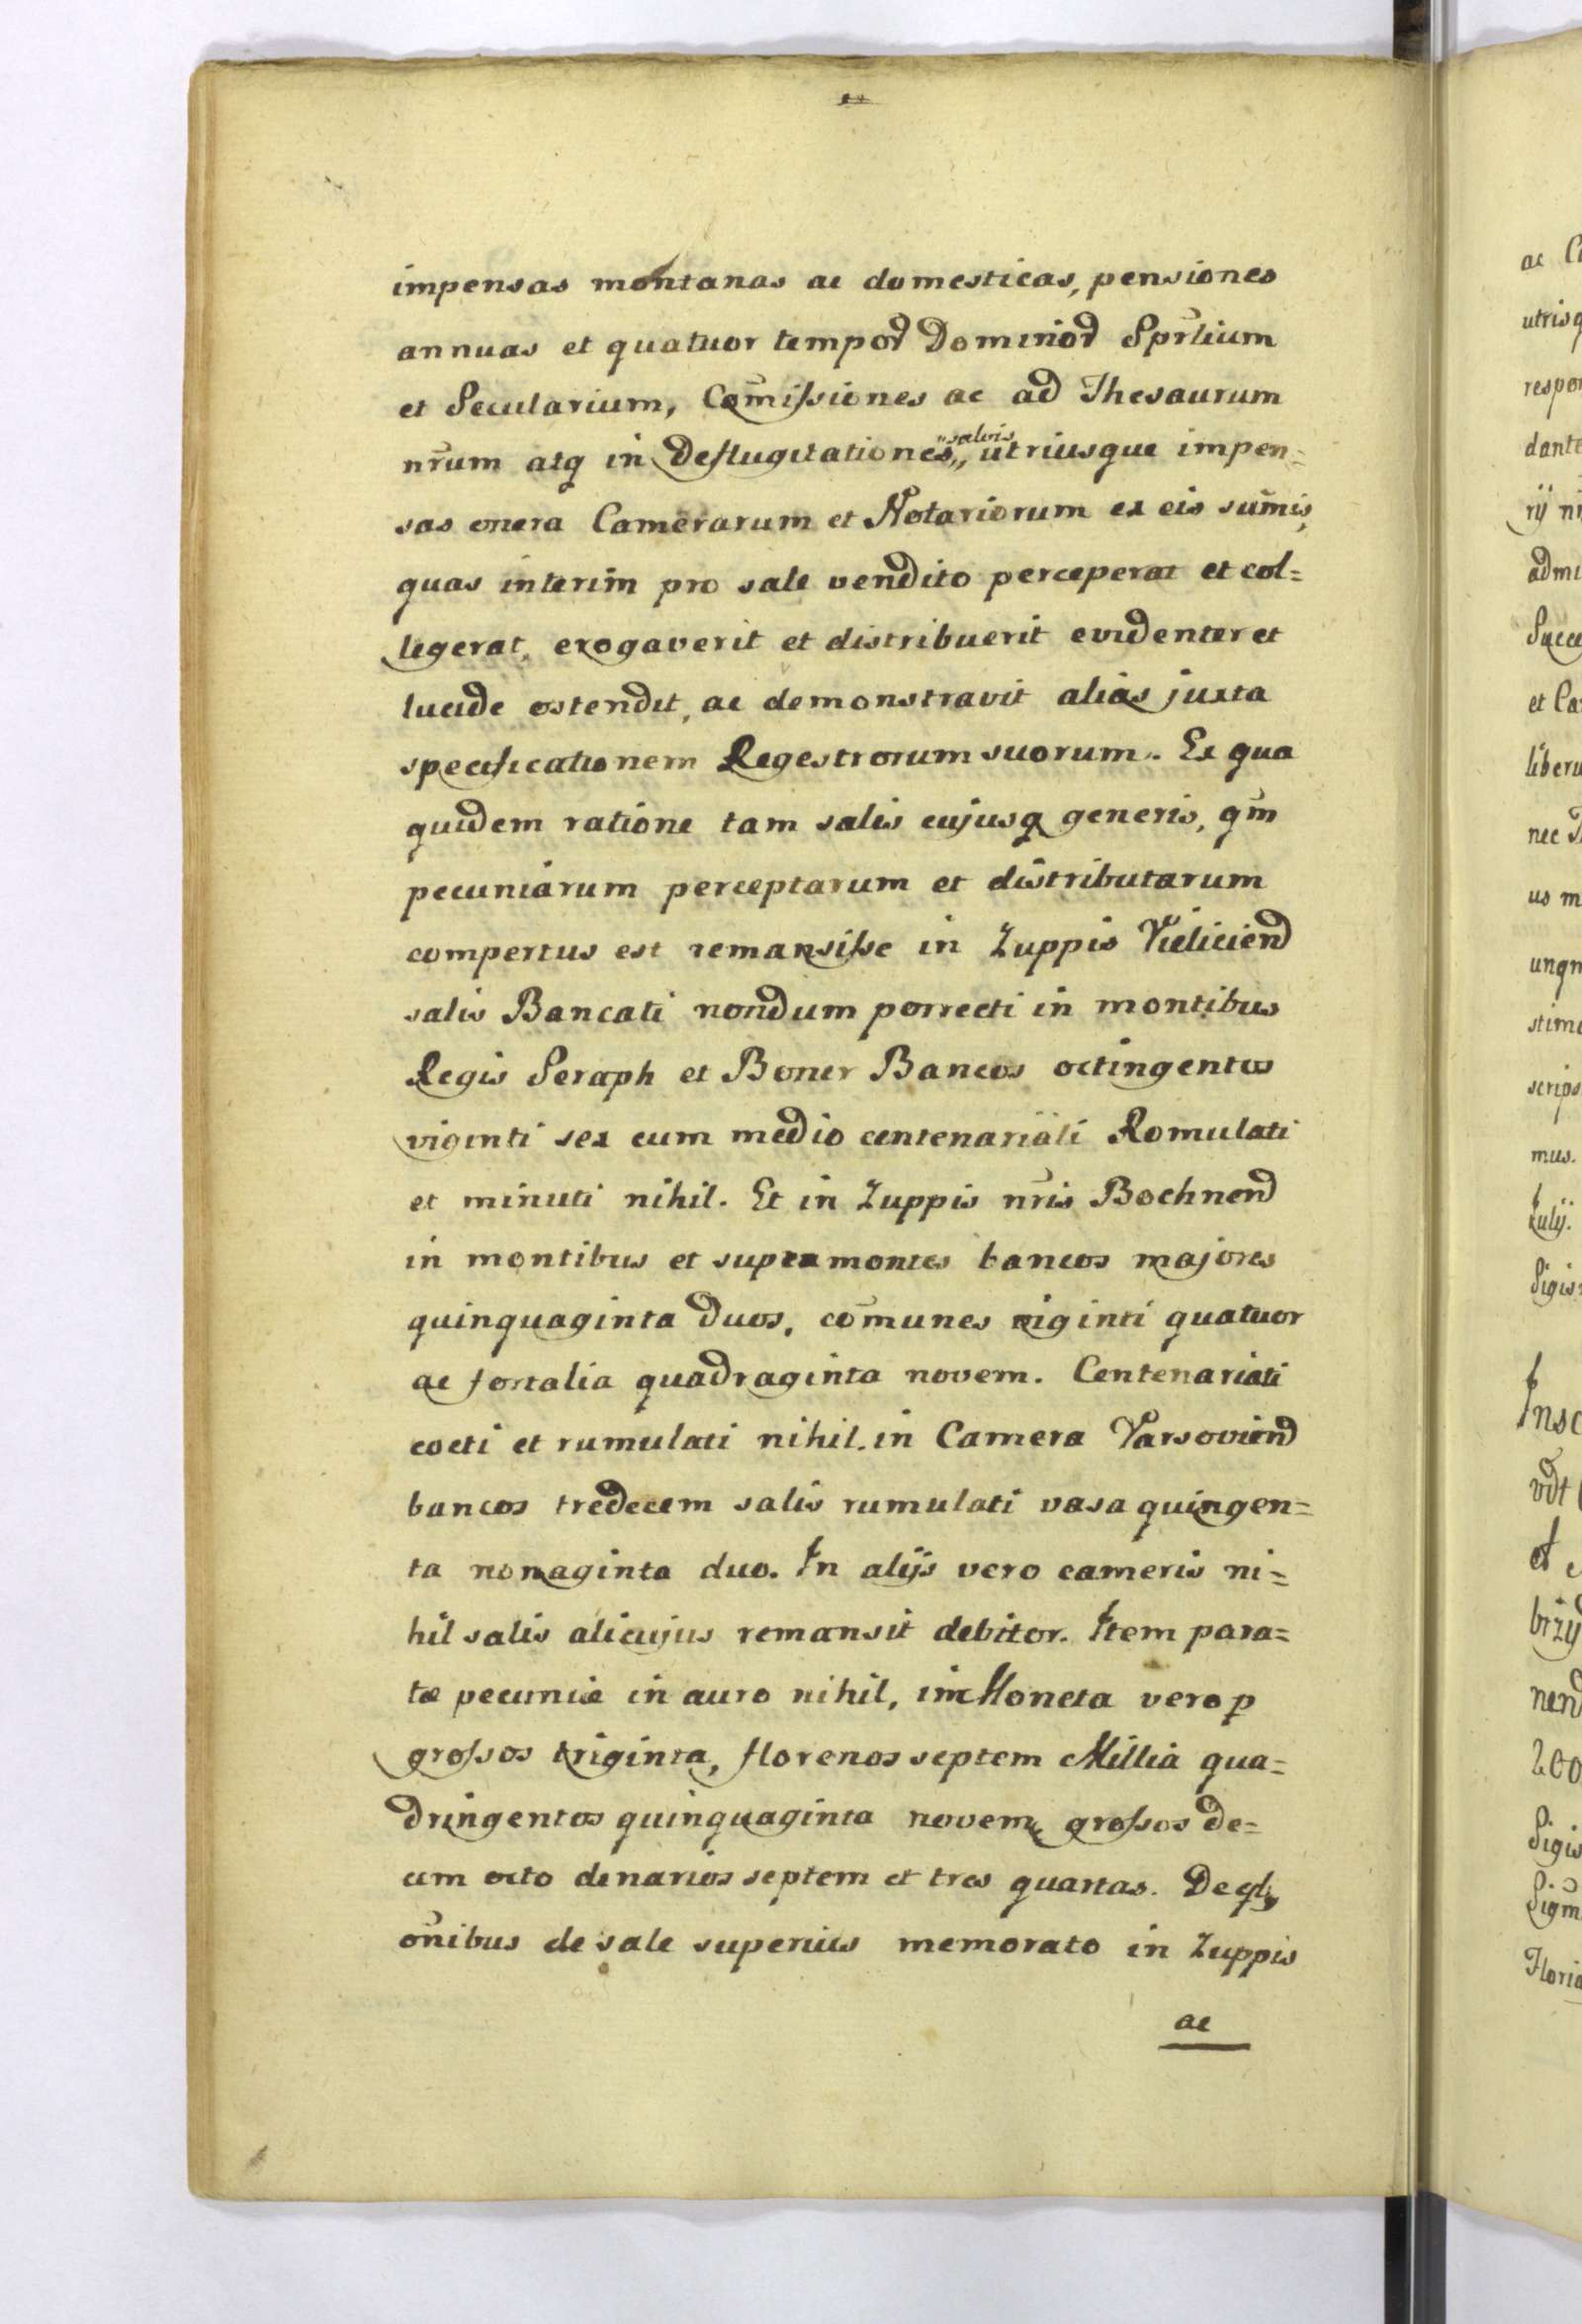 impensas montanas ac domesticas, pensiones
annuas et quatuor tempor Dominor Sprlium
et Secularium, Com̃issiones ac ad Thesaurum
nr̃um atq in Deflugitationes,, utriusque impen=
"salis
sas onera Camerarum et Notariorum ex eis sum̃is,
quas interim pro sale vendito perceperat et col=
legerat, erogaverit et distribuerit evidenter et
lucide ostendit, ac demonstravit alias juxta
specificationem Regestrorum suorum. Ex qua
quidem ratione tam salis cujusq generis, qm̃
pecuniarum perceptarum et distributarum
compertus est remansisse in Zuppis Vieliciend
salis Bancati nondum porrecti in montibus
Regis Seraph et Boner Bancos octingentos
viginti sex cum medio centenariati Romulati
et minuti nihil. Et in Zuppis nr̃is Bochnend
in montibus et supra montes bancos majores
quinquaginta duos, com̃unes viginti quatuor
ac fortalia quadraginta novem. Centenariati
cocti et rumulati nihil. in Camera Varsoviend
bancos tredecem salis rumulati vasa quingen=
ta nonaginta duo. In alijs vero cameris ni=
hil salis alicujus remansit debitor. Item para=
tæ pecuniæ in auro nihil, in Moneta vero p
grossos triginta, florenos septem Millia qua=
dringentos quinquaginta novem, grossos de=
cem octo denarios septem et tres quartas. De
om̃ibus de sale superius memorato in Zuppis
ac